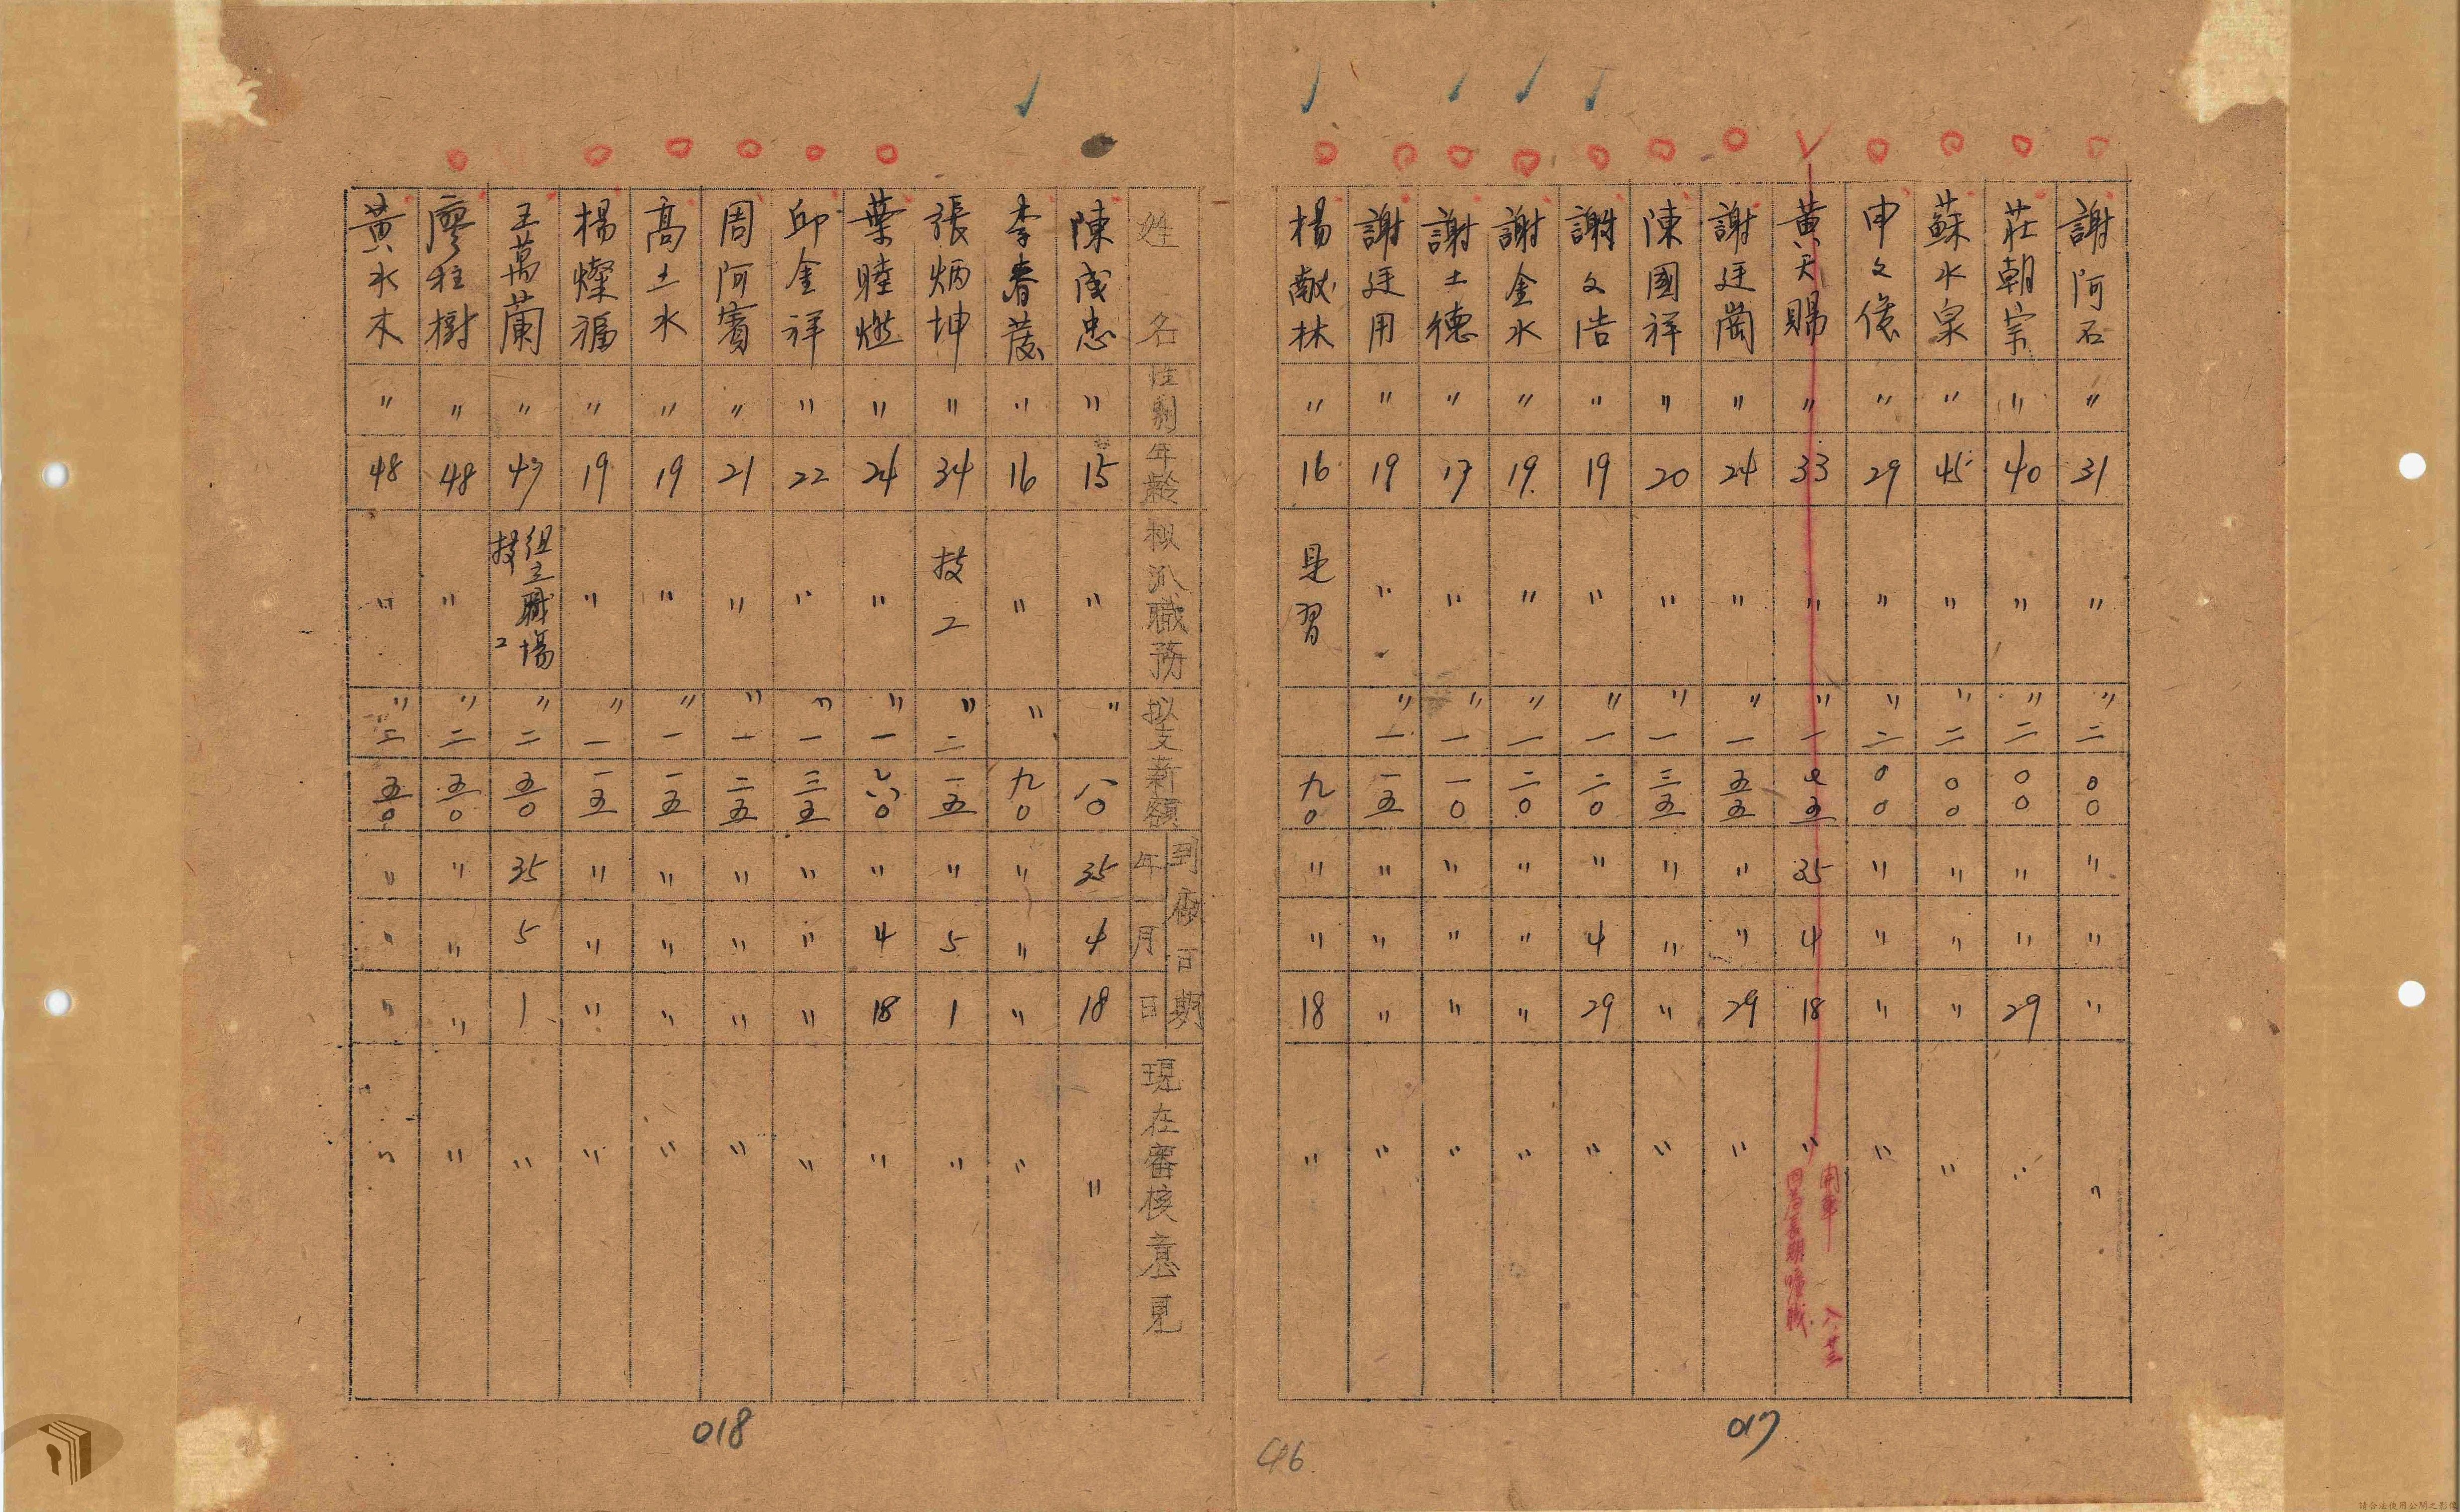 謝阿石 〃 31 〃 〃二〇〇 〃 〃 〃 〃
莊朝宗 〃 40 〃 〃二〇〇 〃 〃 29 〃
蘇水泉 〃 45 〃 〃二〇〇 〃 〃 〃 〃
申文俊 〃 29 〃 〃二〇〇 〃 〃 〃 〃
黃天賜 〃 33 〃 〃一七五 35 4 18 〃
開革
因為長期曠職
謝廷崗 〃 24 〃 〃一五五 〃 〃 29 〃
陳國祥 〃 20 〃 〃一三五 〃 〃 〃 〃
謝文浩 〃 19 〃 〃一二〇 〃 4 29 〃
謝金水 〃 19 〃 〃一二〇 〃 〃 〃 〃
謝土德 〃 17 〃 〃一一〇 〃 〃 〃 〃
謝廷用 〃 19 〃 〃一一五 〃 〃 〃 〃
楊献林 〃 16 見習 九〇 〃 〃 18 〃
017
46
姓名 性別 年齡 拟派職務 拟支薪額 到廠日期 年 月 日 現在審核意見
陳成忠 〃 15 〃 〃八〇 35 4 18 〃
李春茂 〃 16 〃 〃九〇 〃 〃 〃 〃
張炳坤 〃 34 技工 〃二一五 〃 5 1 〃
葉睦燃 〃 24 〃 〃一六〇 〃 4 18 〃
邱金祥 〃 22 〃 〃一三五 〃 〃 〃 〃
周阿賓 〃 21 〃 〃一二五 〃 〃 〃 〃
高土水 〃 19 〃 〃一一五 〃 〃 〃 〃
楊燦福 〃 19 〃 〃一一五 〃 〃 〃 〃
王萬蘭 〃 47 組立職場技工 〃二五〇 35 5 1 〃
廖柱樹 〃 48 〃 〃二五〇 〃 〃 〃 〃
黃水木 〃 48 〃 〃二五〇 〃 〃 〃 〃
018